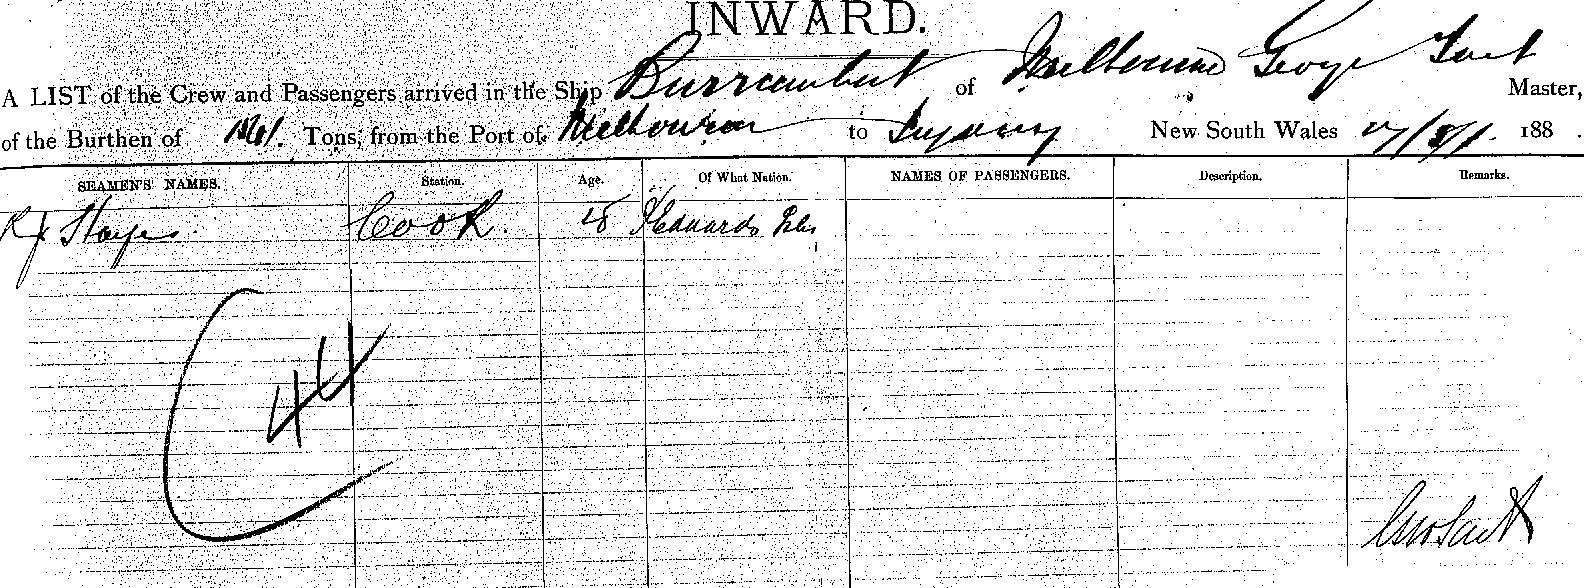 INWARD.
A LIST of the Crew and Passengers arrived in the Ship Burrumbeet of Melbourne George Master,
of the Burthen of Tons, from the Port of Melbourne to Sydney New South Wales 188 .
SEAMEN'S NAMES. Station. Age. Of What Nation. NAMES OF PASSENGERS. Description. Remarks.
Hayes Cook.
44